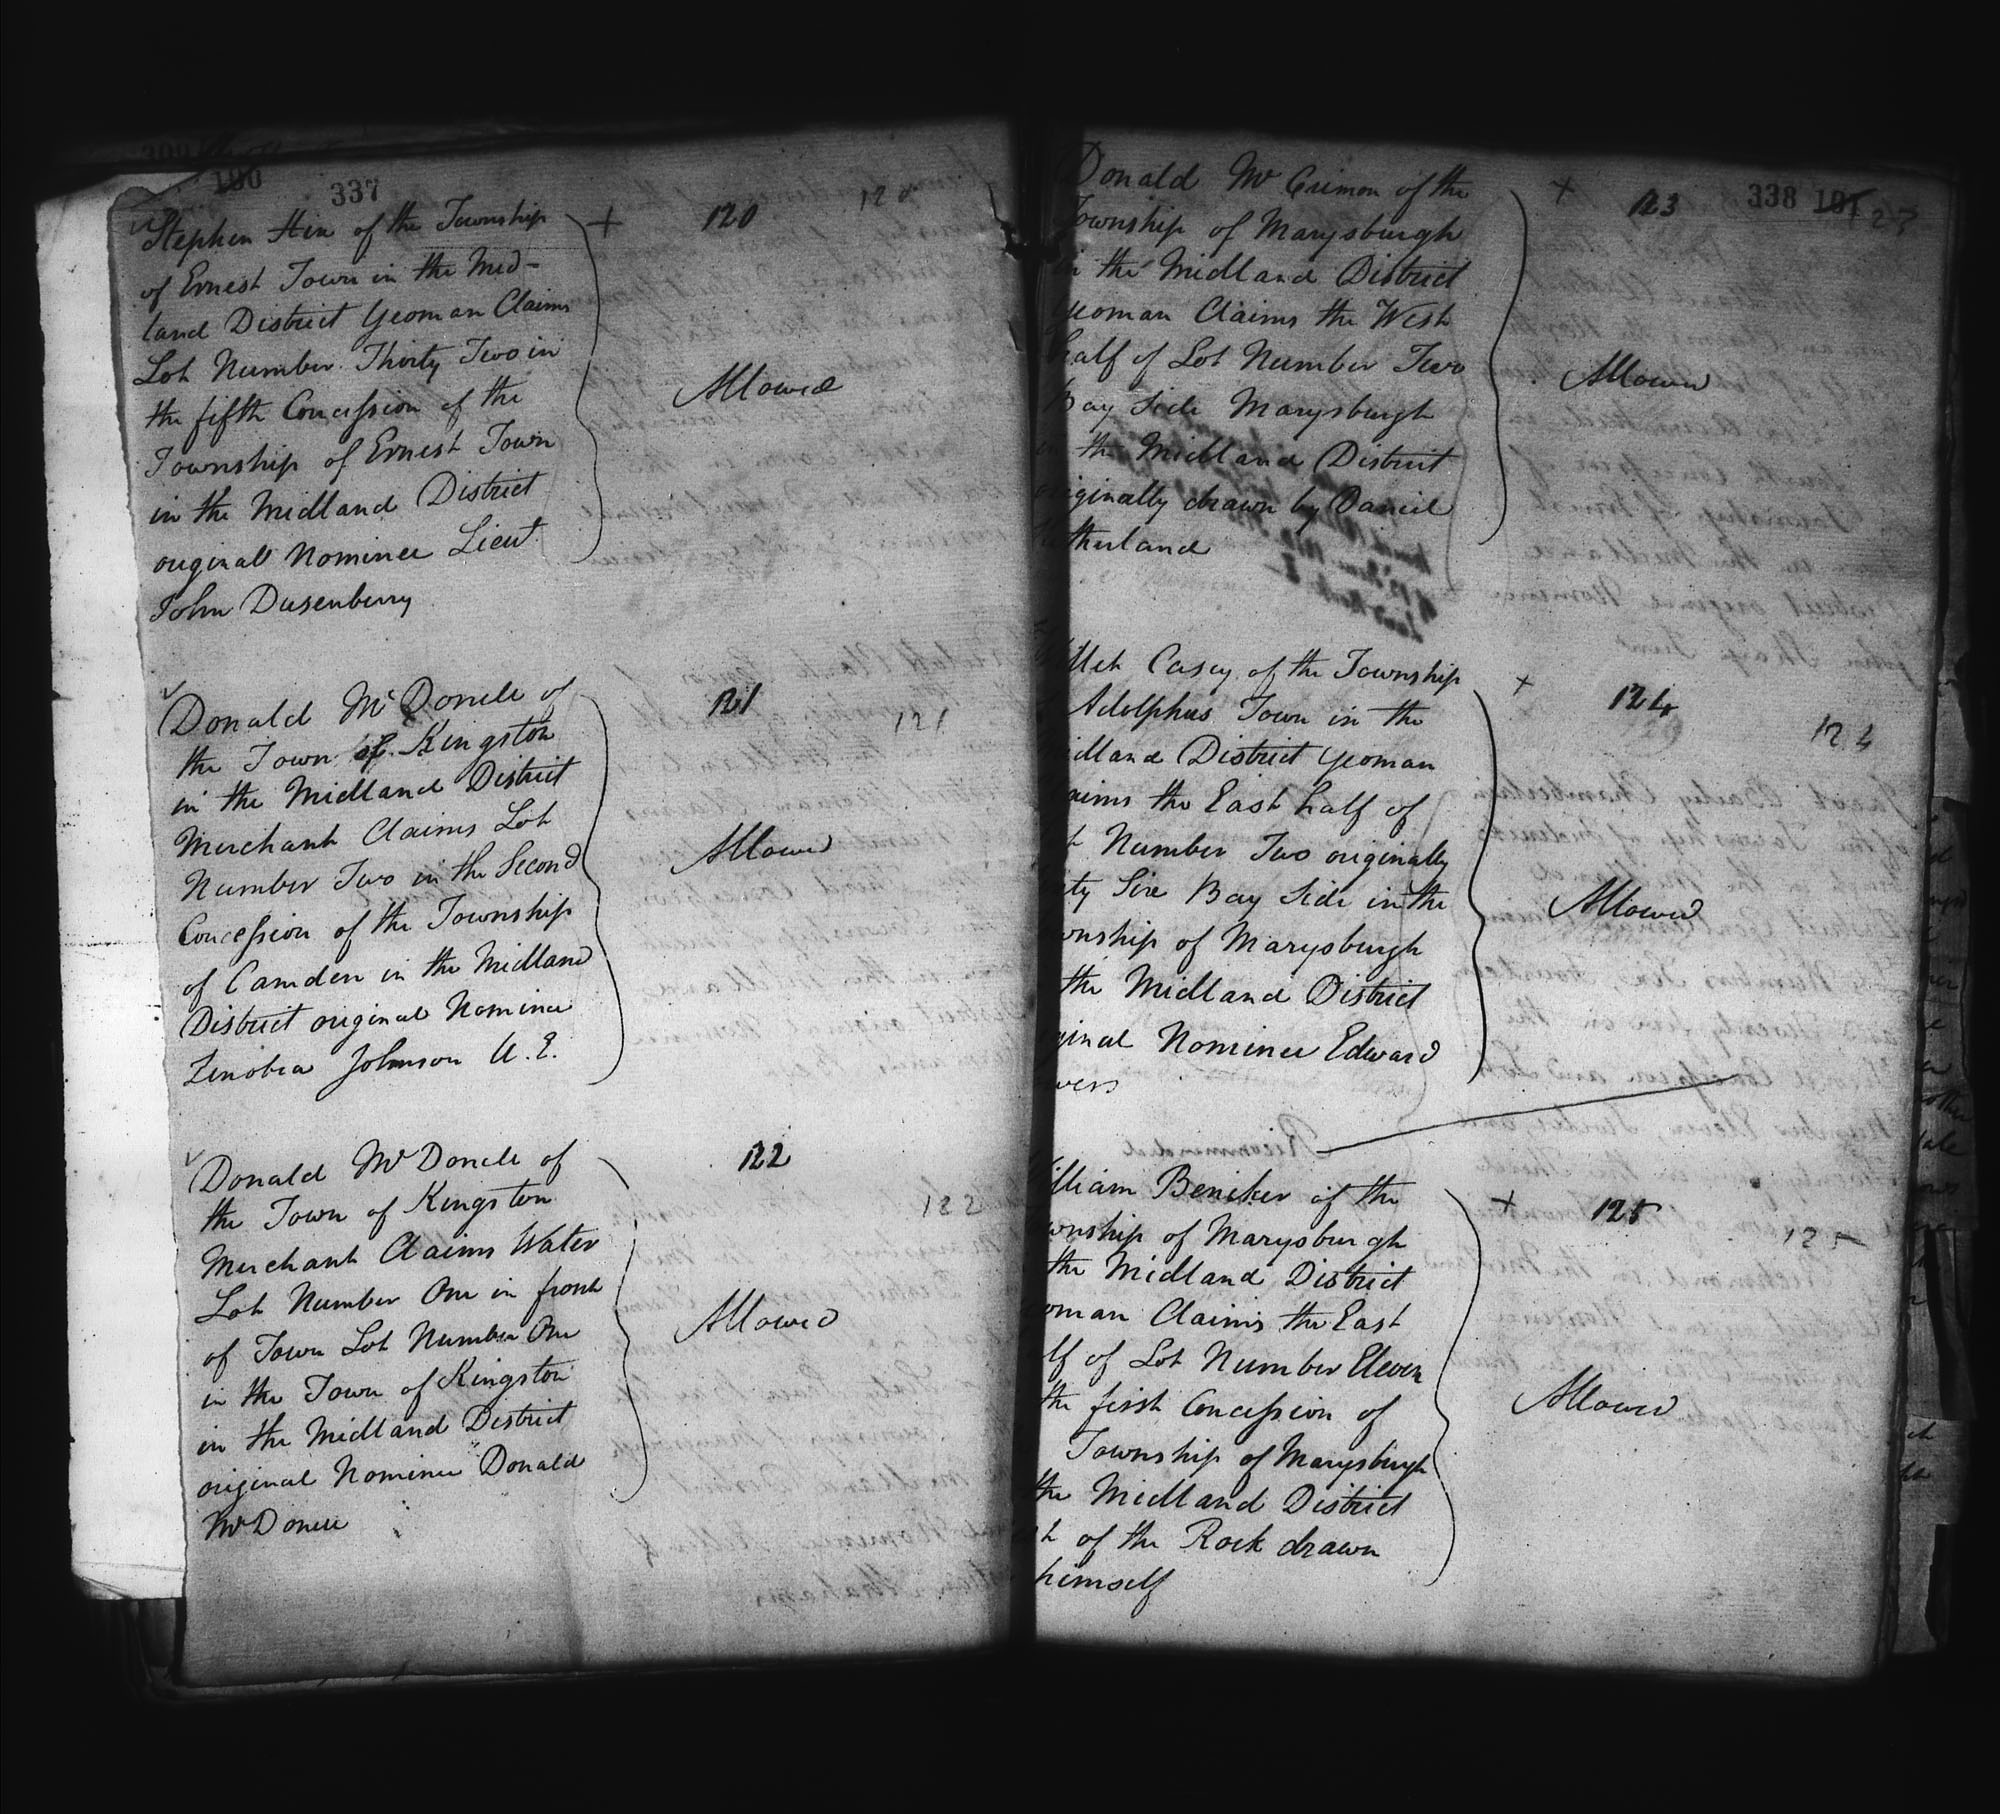 190
337
Stephen Hix of the Township
of Ernest Town in the Mid-
land District Yeoman Claims
Lot Number Thirty Two in
the fifth Concession of the
Township of Ernest Town
in the Midland District
original Nominee Lieut
John Dusenberry
+ 120 120
Allowed
Donald McDonell of
the Town of Kingston
in the Midland District
Merchant Claims Lot
Number Two in the Second
Concession of the Township
of Camden in the Midland
District original Nominee
Zenobia Johnson U.E.
121 121
Allowed
Donald McDonell of
the Town of Kingston
Merchant Claims Water
Lot Number One in front
of Town Lot Number One
in the Town of Kingston
in the Midland District
original Nominee Donald
McDonell
122
122
Allowed
338 191
Donald McCrimon of the
Township of Marysburgh
in the Midland District
Yeoman Claims the West
half of Lot Number Two
Bay Side Marysburgh
in the Midland District
originally drawn by Daniel
therland
+ 123
Allowed
llet Casey of the Township
Adolphus Town in the
idland District Yeoman
aims the East half of
t Number Two originally
ty Six Bay Side in the
wnship of Marysburgh
the Midland District
ginal Nominee Edward
wers
+ 124
124
Allowed
illiam Beniker of the
wnship of Marysburgh
the Midland District
oman Claims the East
lf of Lot Number Eleven
the first Concession of
Township of Marysburgh
the Midland District
t of the Rock drawn
himself
+ 125
125
Allowed